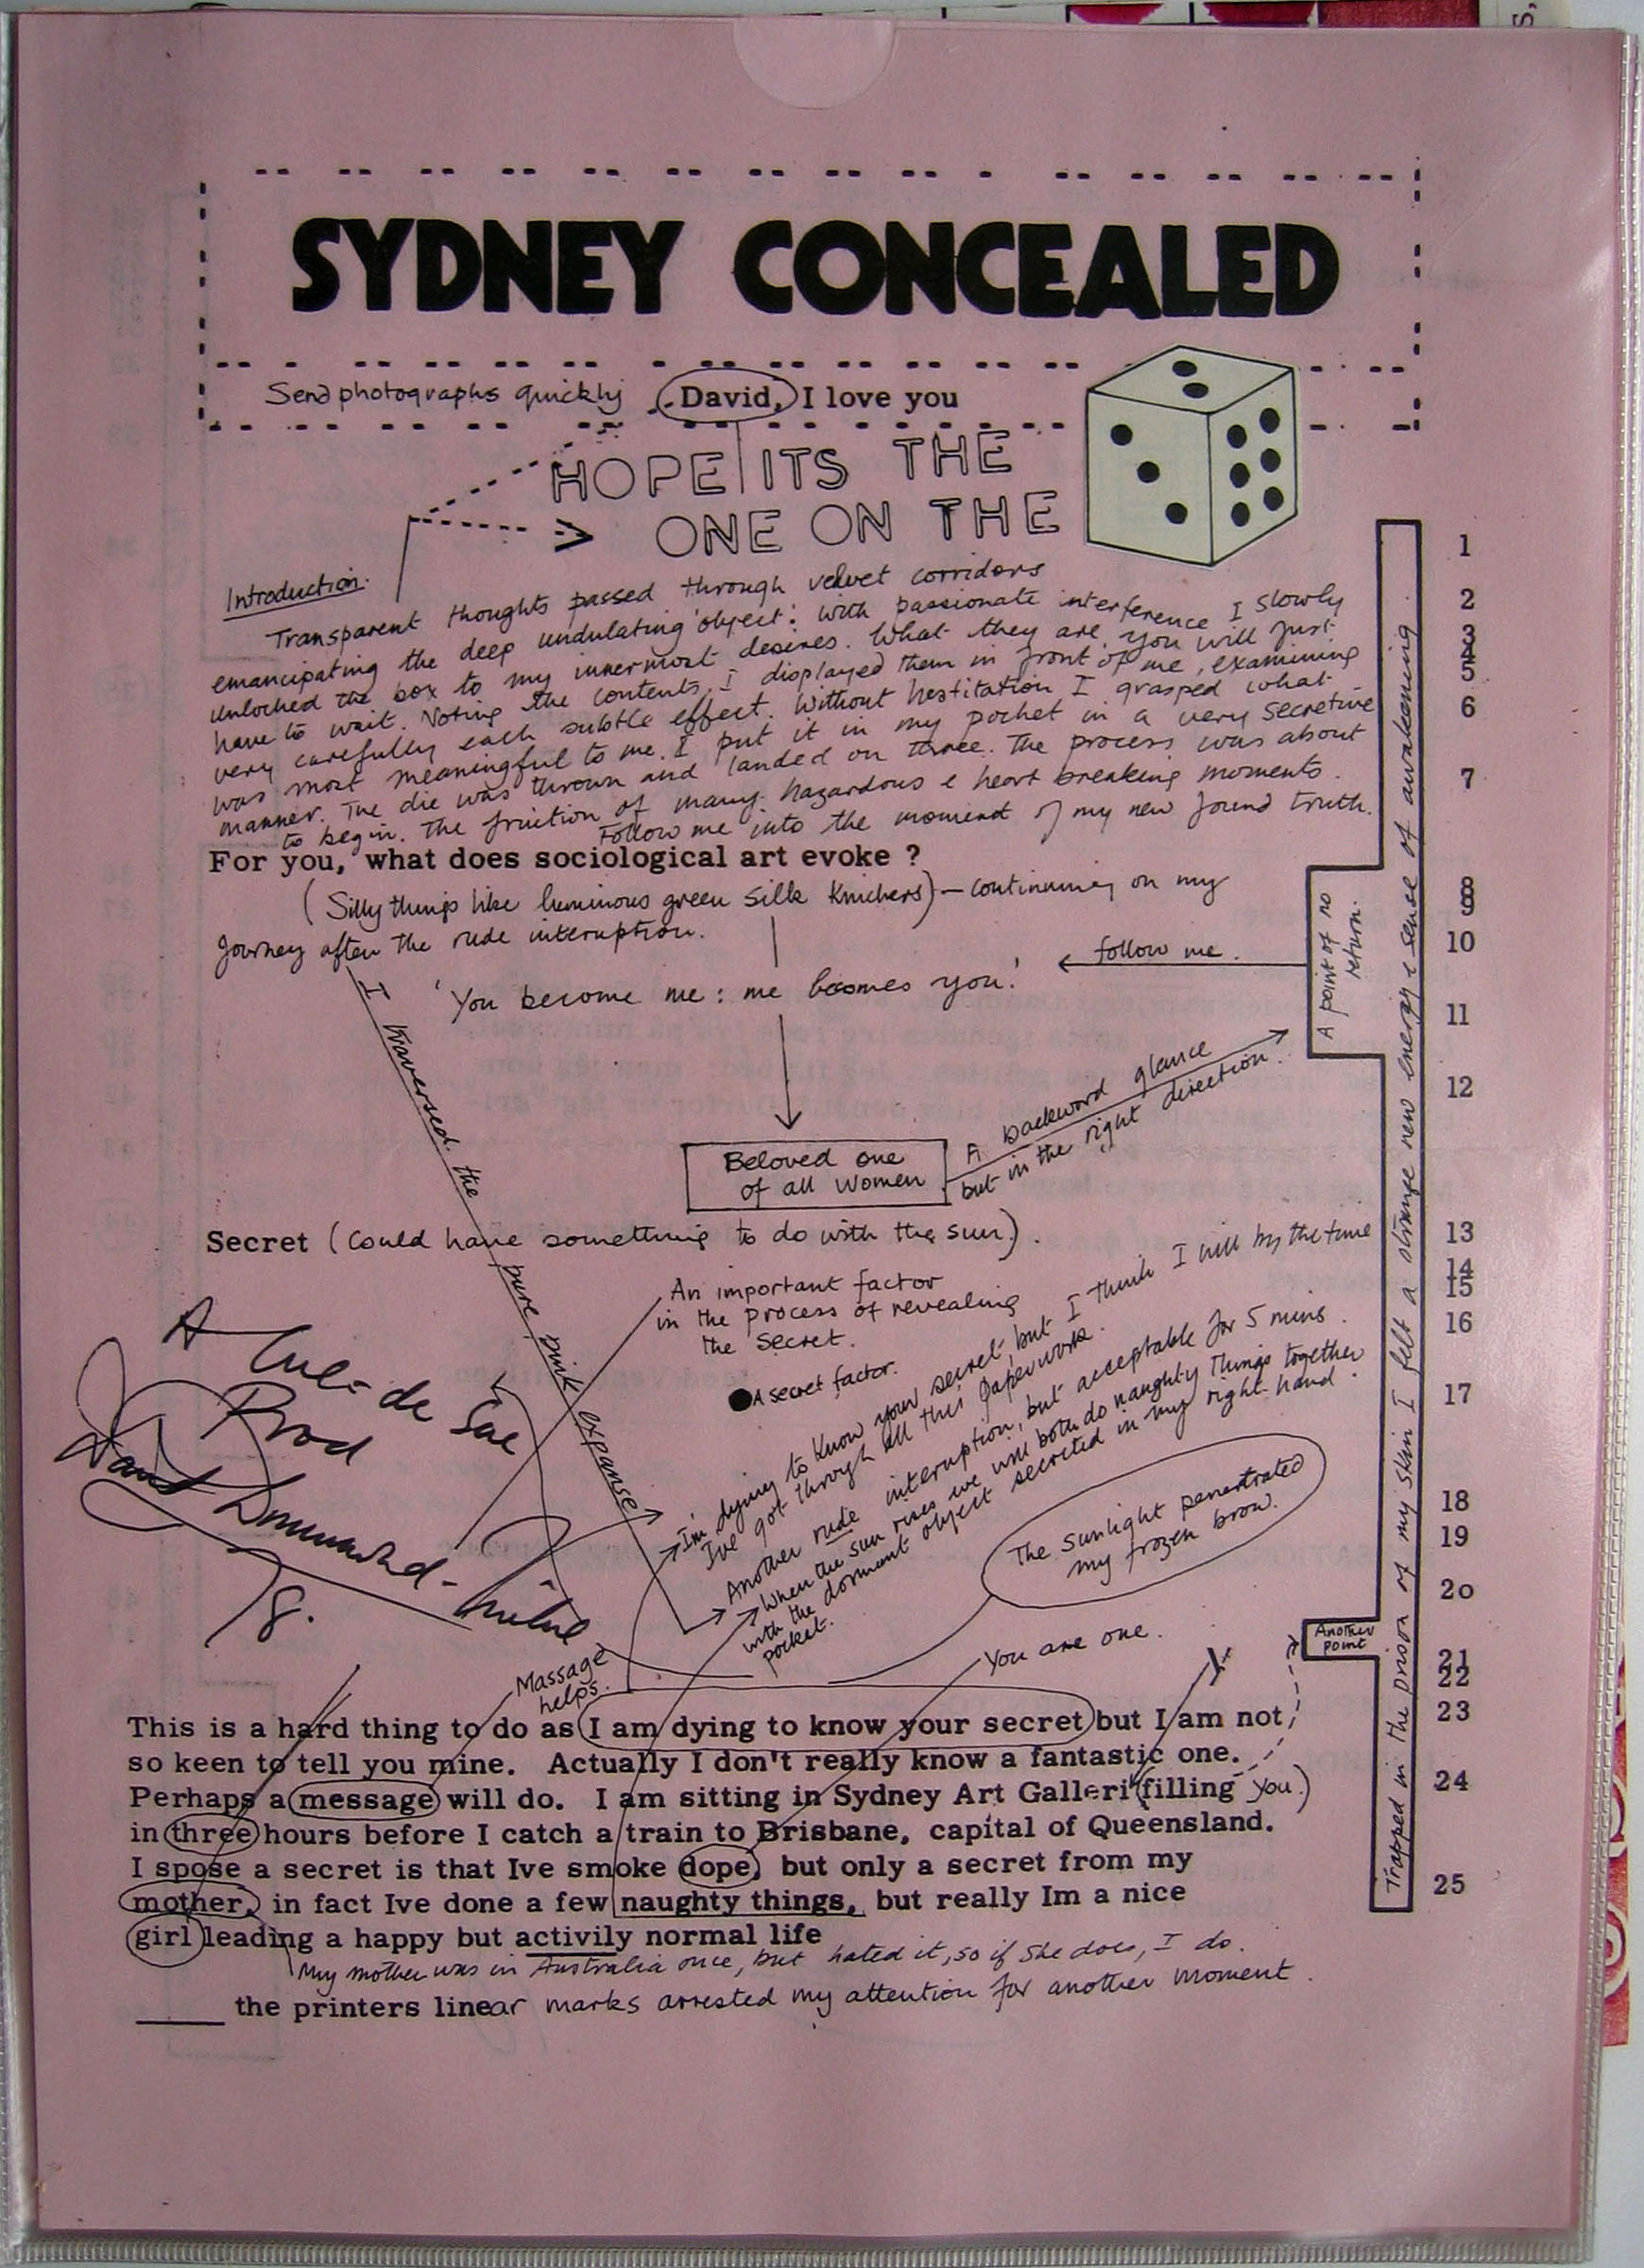 SYDNEY CONCEALED
Send photographs quickly David, I love you
HOPE ITS THE
ONE ON THE
Introduction.
Transparent thoughts passed through velvet corridors
emancipating the deep undulating 'object': with passionate interference I slowly
unlocked the box to my innermost desires. What they are, you will just
have to wait. Noting the contents, I displayed them in front of me, examining
very carefully each subtle effect. Without hestitation I grasped what
was most meaningful to me. I put it in my pocket in a very secretive
manner. The die was thrown and landed on three. The process was about
to begin. The fruition of many hazardous & heart breaking moments.
Follow me into the moment of my new found truth.
For you, what does sociological art evoke ?
(Silly things like luminous green silk Knickers) — continuing on my
journey after the rude interuption.
follow me.
'You become me: me becomes you!'
I traversed the pure pink expanse
Beloved one
of all women
A backword glance
but in the right direction.
Secret (could have something to do with the sun).
An important factor
in the process of revealing
the secret.
A secret factor.
I'm dying to know your secret, but I think I will by the time
I've got through all this paperwork.
Another rude interuption, but acceptable for 5 mins.
When the sun rises we will both do naughty things together
with the dormant object secreted in my right hand
pocket.
The sunlight penertrated
my frozen brow.
A Cul-de Sac
Prod
78.
Massage
helps.
You are one.
This is a hard thing to do as I am dying to know your secret but I am not
so keen to tell you mine. Actually I don't really know a fantastic one.
Perhaps a message will do. I am sitting in Sydney Art Galleri (filling you)
in three hours before I catch a train to Brisbane, capital of Queensland.
I spose a secret is that Ive smoke dope, but only a secret from my
mother, in fact Ive done a few naughty things, but really Im a nice
girl leading a happy but activily normal life
My mother was in Australia once, but hated it, so if she does, I do.
the printers linear marks arrested my attention for another moment.
A point of no
return.
Another
point
Trapped in the prison of my skin I felt a strange new energy & sense of awakening.
1
2
3
4
5
6
7
8
9
10
11
12
13
14
15
16
17
18
19
20
21
22
23
24
25